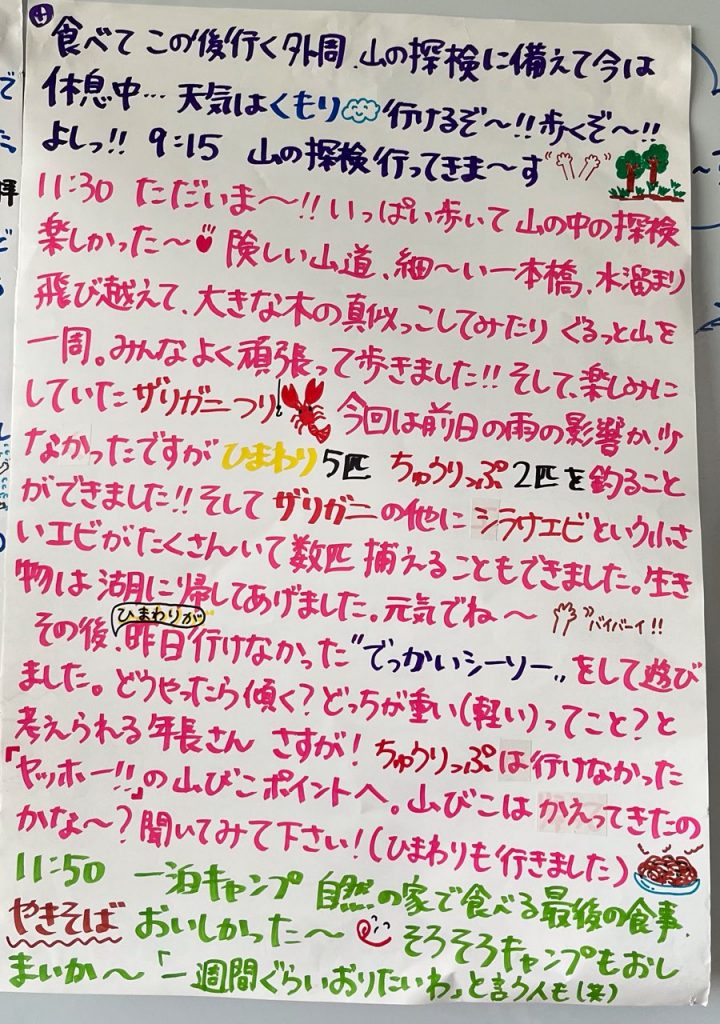 食べて この後行く外周、山の探検に備えて今は
休息中… 天気はくもり 行けるぞ〜!!歩くぞ〜!!
よしっ!! 9:15 山の探検行ってきま〜す
11:30 ただいま〜!! いっぱい歩いて山の中の探検
楽しかった〜 険しい山道、細〜い一本橋、水溜まり
飛び越えて、大きな木の真似っこしてみたりぐるっと山を
一周。みんなよく頑張って歩きました!! そして、楽しみに
していたザリガニつり 今回は前日の雨の影響か!!少
なかったですが ひまわり5匹 ちゅうりっぷ2匹を釣ること
ができました!! そして ザリガニの他に シラサエビという小さ
いエビがたくさんいて数匹 捕えることもできました。生き
物は湖に帰してあげました。元気でね〜 バイバーイ!!
その後、ひまわりが昨日行けなかった"でっかいシーソー〟をして遊び
ました。どうやったら傾く?どっちが重い(軽い)ってこと?と
考えられる年長さん さすが! ちゅうりっぷは行けなかった
「ヤッホー!!」の山びこポイントへ。山びこは かえってきたの
かな〜?聞いてみて下さい!(ひまわりも行きました)
11:50 一泊キャンプ 自然の家で食べる最後の食事、
やきそば おいしかった〜 そろそろキャンプもおし
まいか〜「一週間ぐらいおりたいわ」と言う人も(笑)